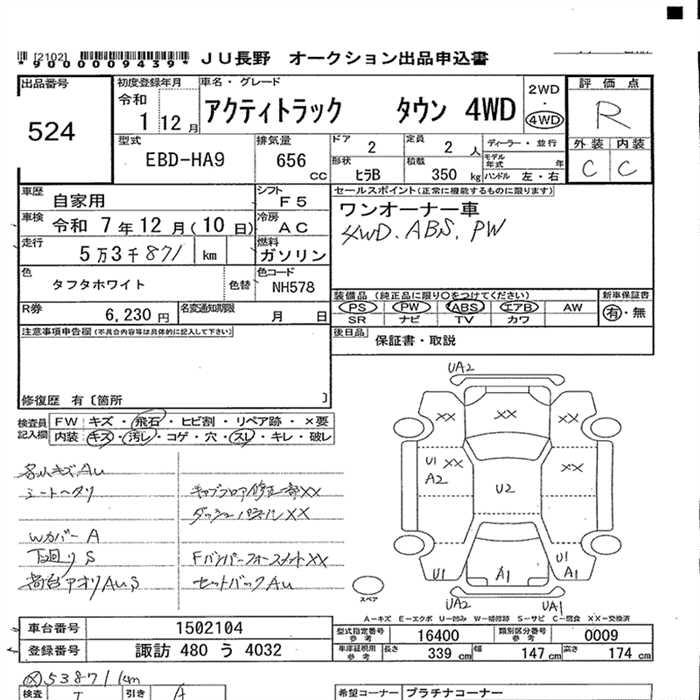 [2102]
*9000009439* JU長野 オークション出品申込書
出品番号
524
初度登録年月
令和
1 12月
車名・グレード
アクティトラック タウン 4WD
2WD
・
4WD
評価点
R
外装 内装
C C
型式
EBD-HA9
排気量
656 cc
ドア
2
定員
2 人
形状
ヒラB
積載
350 kg
ディーラー・並行
モデル年式 年
ハンドル 左・右
車歴
自家用
シフト
F5
車検
令和 7年12月(10日)
冷房
AC
走行
5万3千871 km
燃料
ガソリン
色
タフタホワイト
色替
色コード
NH578
R券
6,230円
名変通知期限
月 日
セールスポイント(正常に機能するものに限ります)
ワンオーナー車
4WD、ABS、PW
装備品 (純正品に限り○をつけてください)
PS PW ABS エアB AW
SR ナビ TV カワ
新車保証書
有・無
後日品
保証書・取説
注意事項申告欄(不具合内容等は具体的に記入して下さい)
修復歴 有〔箇所 〕
検査員記入欄
FW キズ・飛石・ヒビ割・リペア跡・×要
内装 キズ・汚レ・コゲ・穴・スレ・キレ・破レ
各小キズAu
シートヘタリ
キャブフロア修正一部XX
ダッシュパネルXX
Wカバー A
下廻り S
FバンパーフォースメントXX
荷台アオリAu,S
セットバックAu
UA2
XX XX XX
U1 XX
A2
XX
U2
U1 A1 U1
A1
UA2 UA1
スペア
A－キズ E－エクボ U－凹み W－補修跡 S－サビ C－腐食 XX－交換済
車台番号 1502104
登録番号 諏訪 480 う 4032
型式指定番号 参考 16400
類別区分番号 参考 0009
車庫証明用 参考 長さ 339cm 幅 147cm 高さ 174cm
53871km
検査 T 引き A
希望コーナー プラチナコーナー